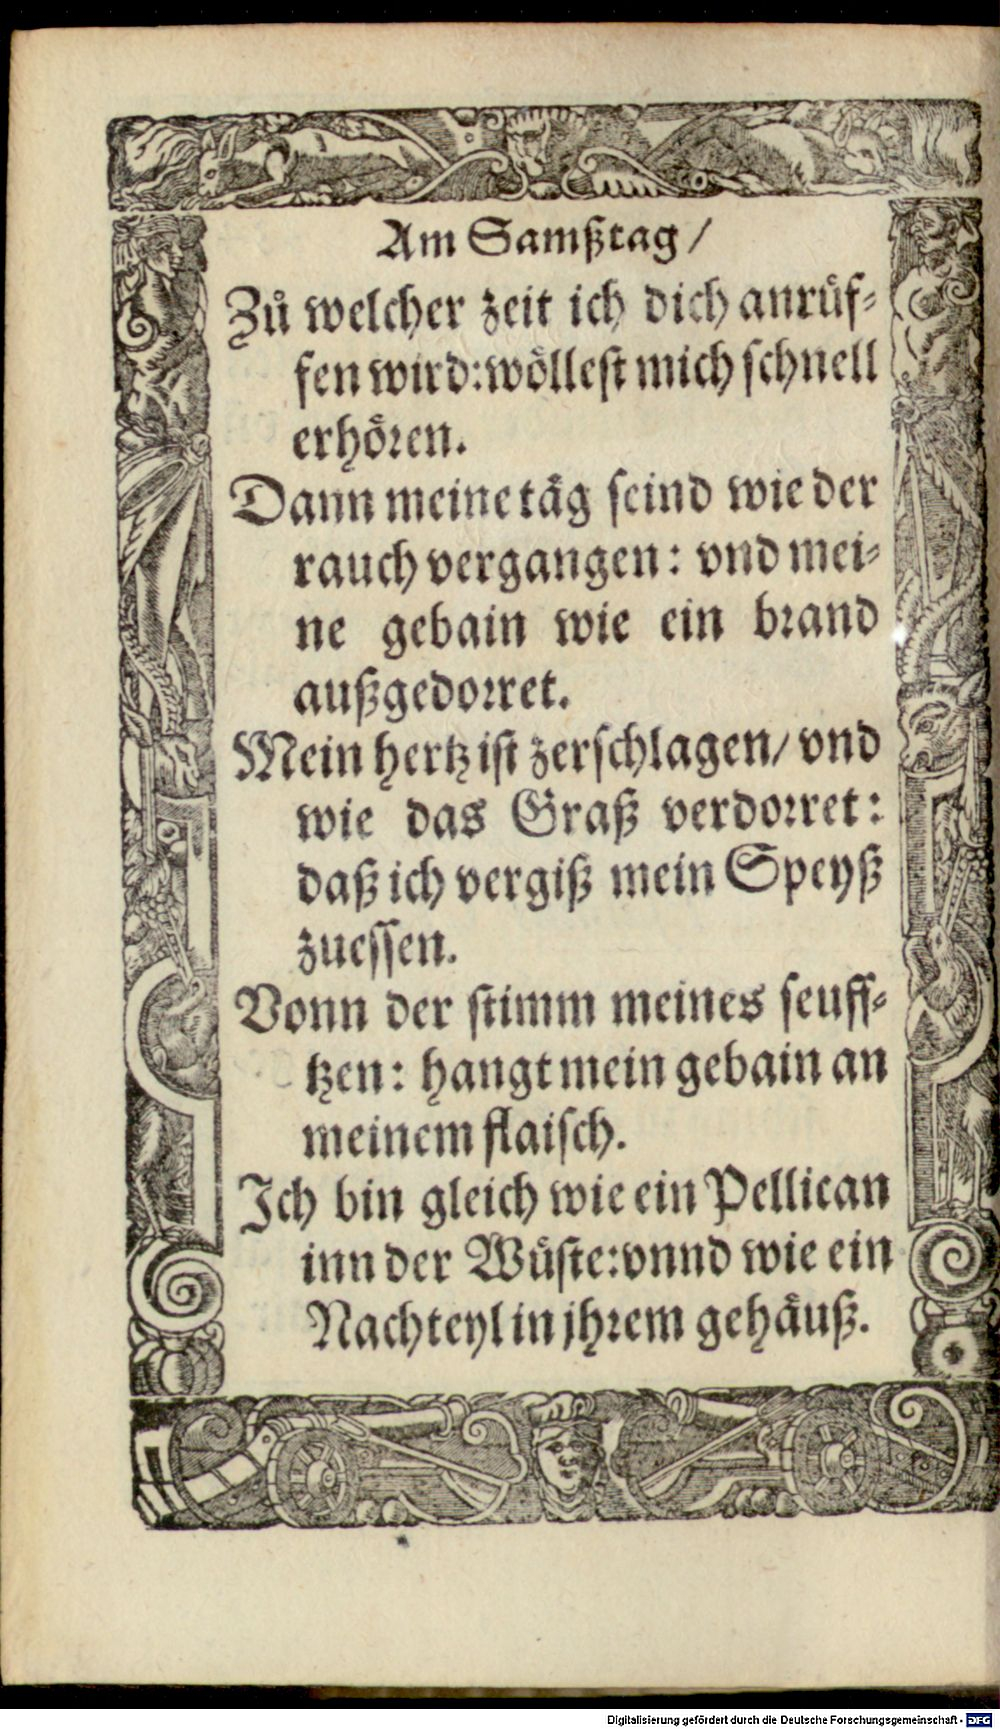 Am Samßtag/
Zů welcher zeit ich dich anrüf⸗
fen wird: wöllest mich schnell
erhören.
Dann meine täg seind wie der
rauch vergangen: vnd mei⸗
ne gebain wie ein brand
außgedorret.
Mein hertz ist zerschlagen/ vnd
wie das Graß verdorret:
daß ich vergiß mein Speyß
zuessen.
Vonn der stimm meines seuff⸗
tzen: hangt mein gebain an
meinem flaisch.
Ich bin gleich wie ein Pellican
inn der Wüste: vnnd wie ein
Nachteyl in jhrem gehäuß.
Digitalisierung gefördert durch die Deutsche Forschungsgemeinschaft - DFG